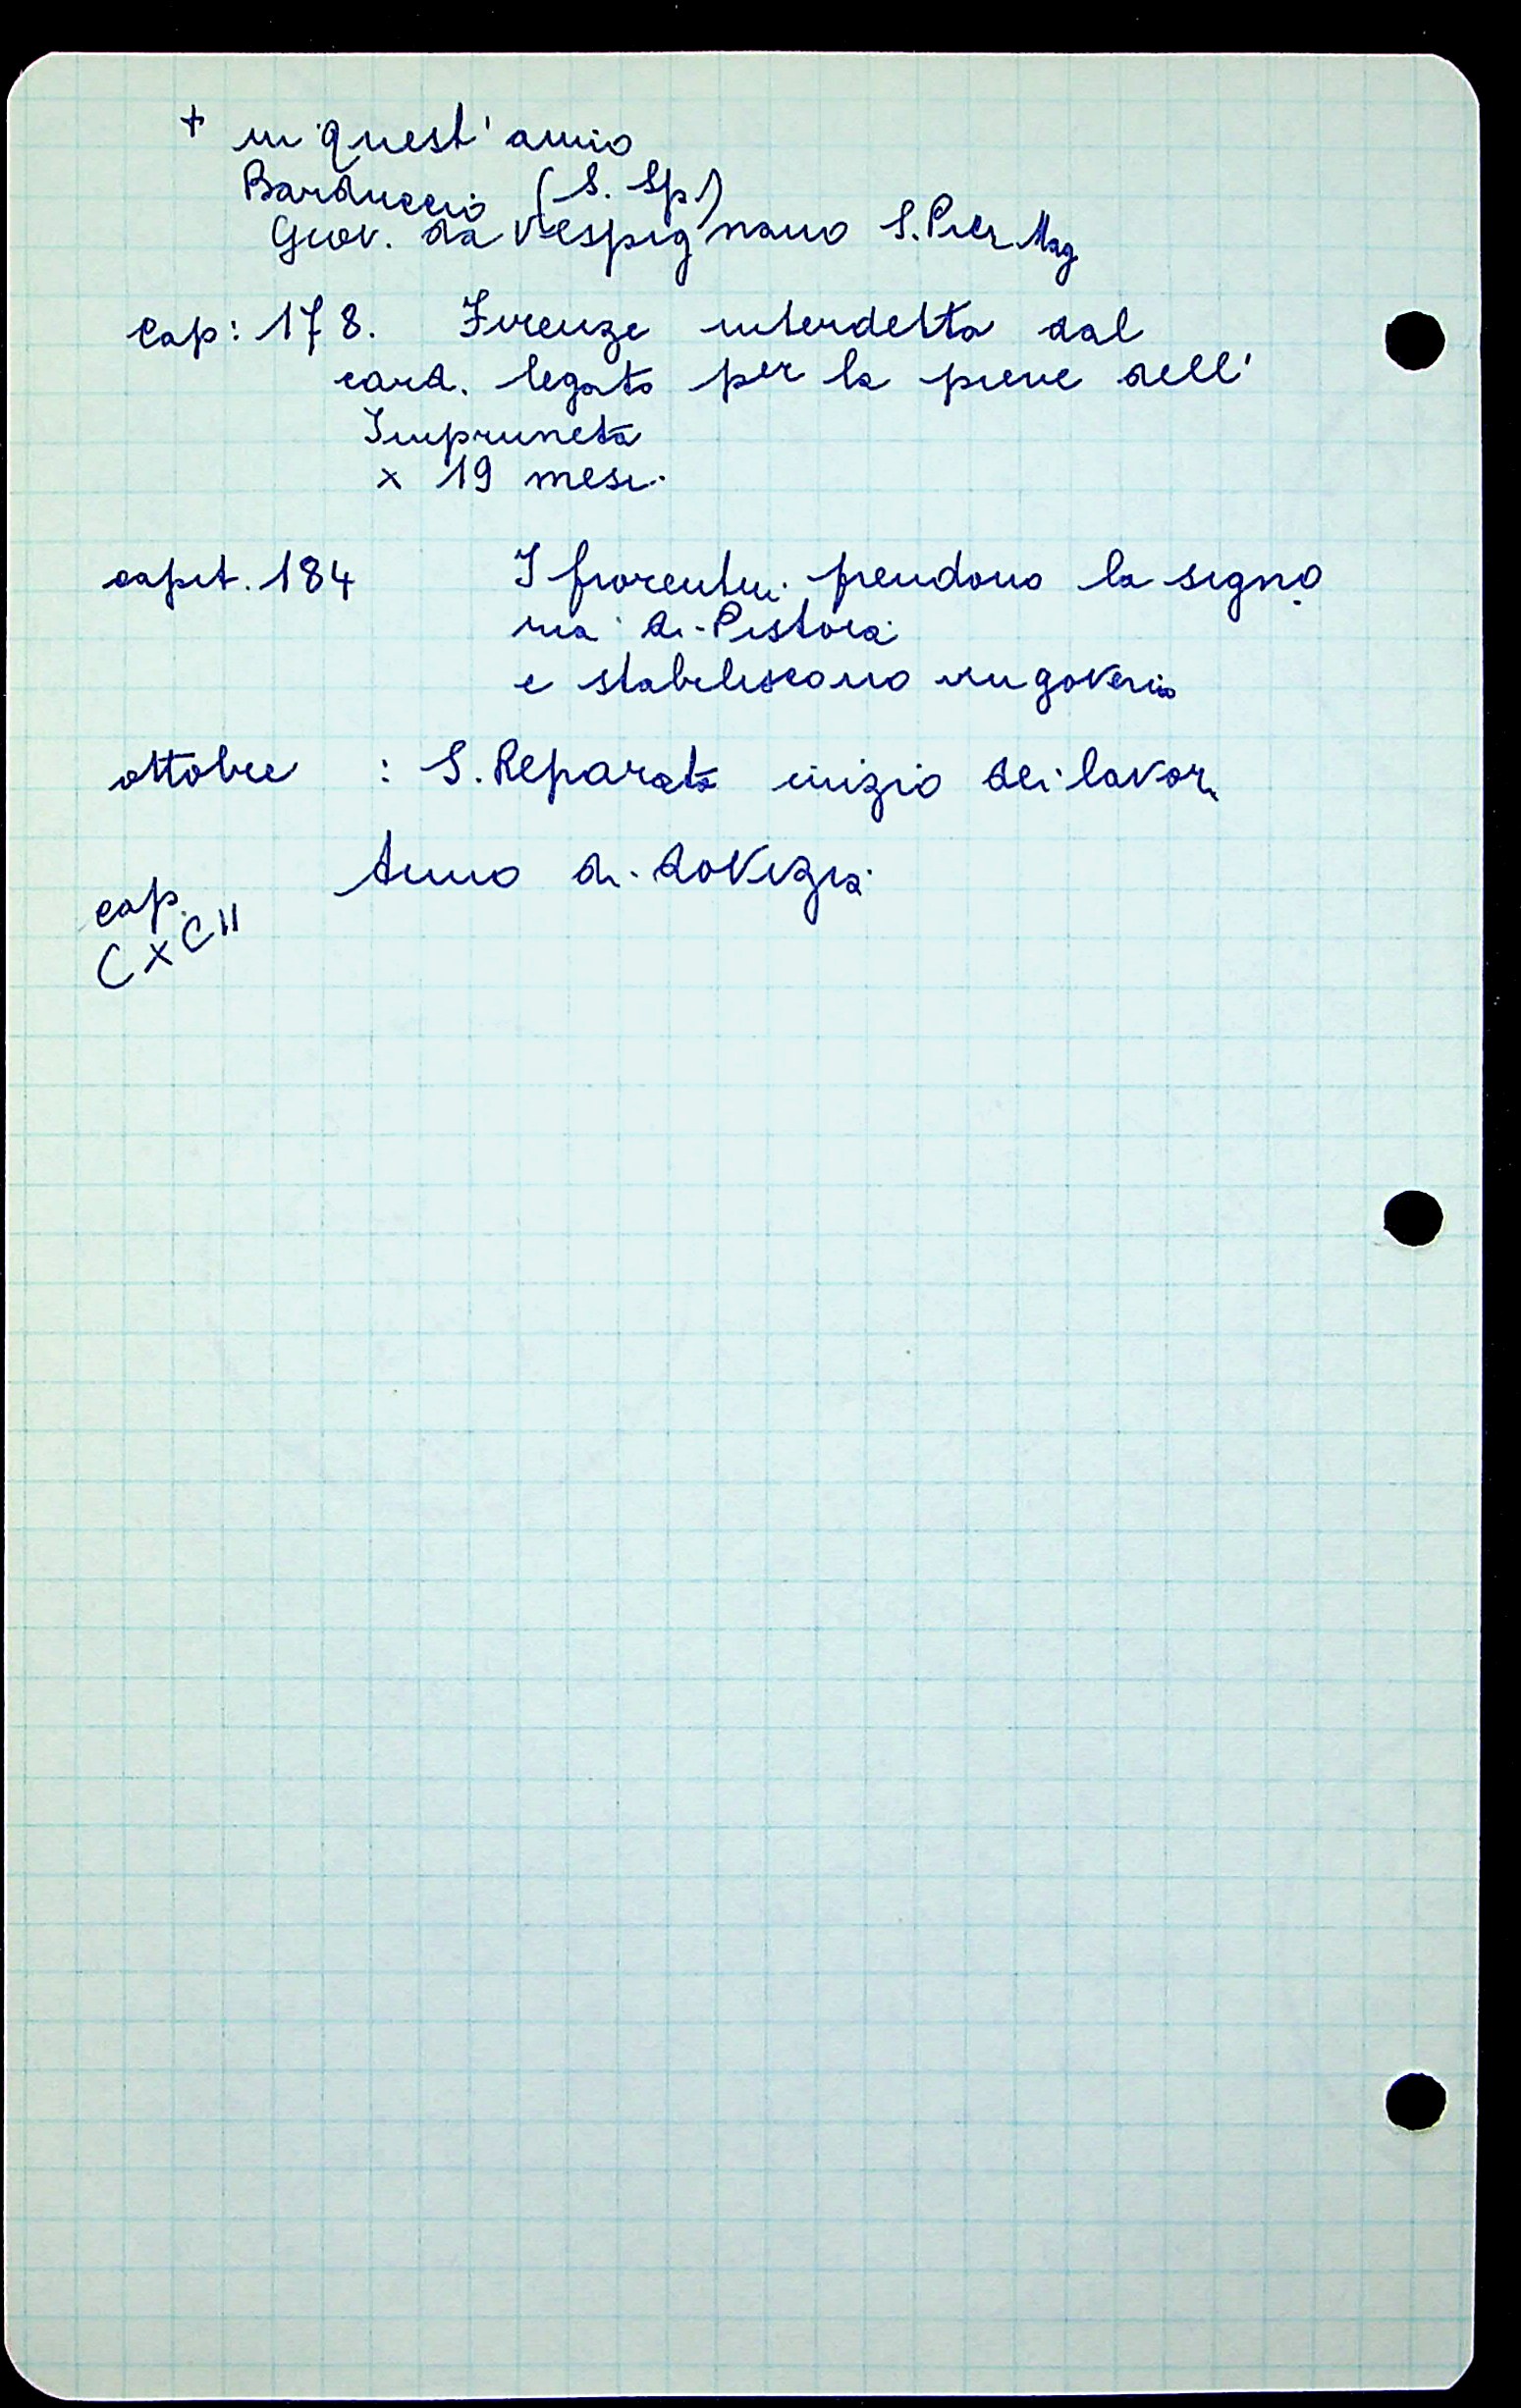 + in quest' anno
Barduccio (S. Sp)
Giov. da Vespignano S. Pier Mag
Cap: 178. Firenze interdetta dal
card. legato per la pieve dell'
Impruneta
x 19 mesi.
capit. 184 I fiorentini prendono la signo
ria di Pistoia
e stabiliscono un governo
ottobre : S. Reparata inizio dei lavori
Anno di dovizia
cap.
CXCII